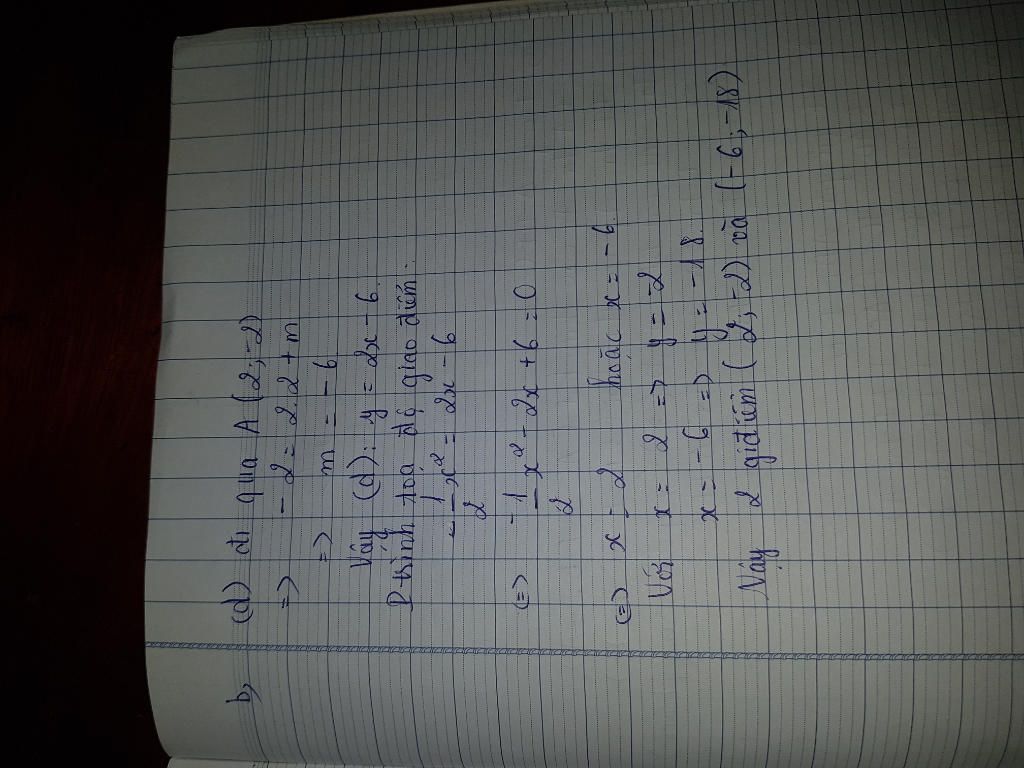 b, (d) đi qua A (2 ; -2)
=> -2 = 2.2 + m
=> m = -6
Vậy (d): y = 2x - 6.
P trình toá độ giao điểm:
-1/2 x² = 2x - 6
(=) -1/2 x² - 2x + 6 = 0
(=) x = 2 hoặc x = -6.
Với x = 2 => y = -2
x = -6 => y = -18.
Vậy 2 giđiểm (2 ; -2) và (-6 ; -18)